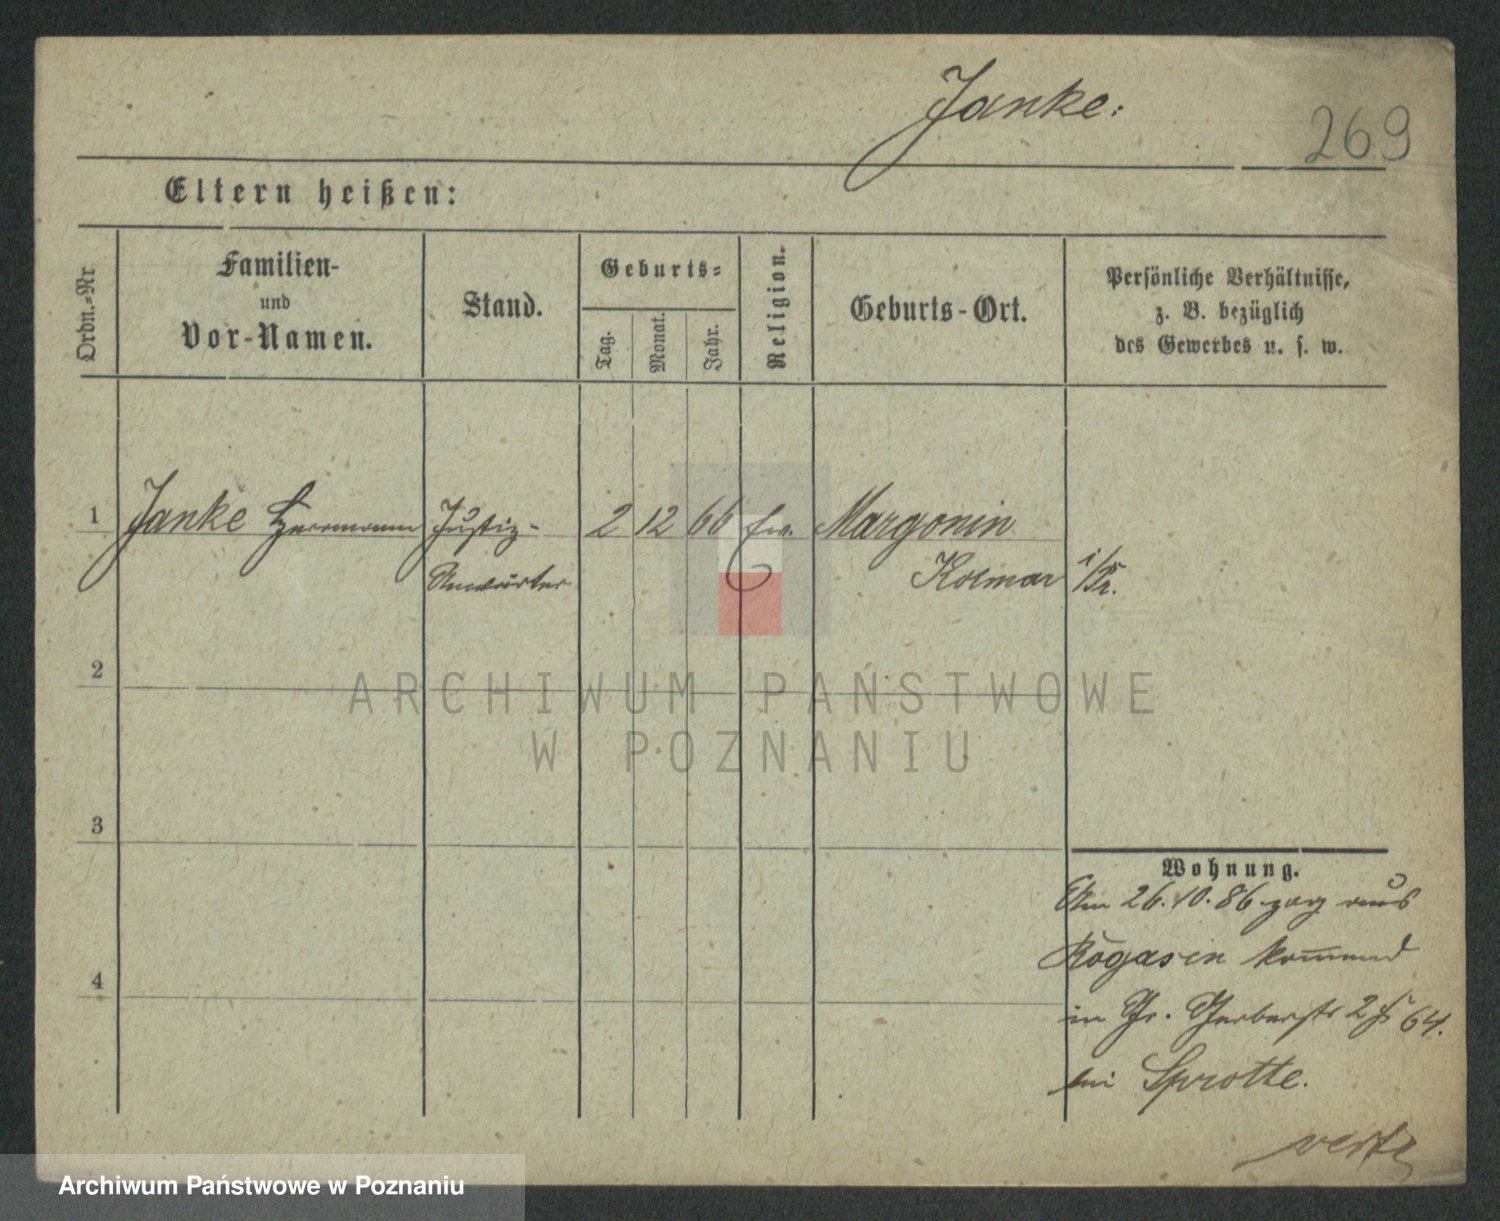 Janke:
269
Eltern heißen:
Ordn.-Nr
Familien-
und
Vor-Namen.
Stand.
Geburts-
Tag.
Monat.
Jahr.
Religion.
Geburts-Ort.
Persönliche Verhältnisse,
z. B. bezüglich
des Gewerbes u. s. w.
1 Janke Herrmann Justiz- 2 12 66 ev. Margonin
Anwärter Kolmar i/Pr.
2
ARCHIWUM PAŃSTWOWE
W POZNANIU
3
Wohnung.
Am 26.10.86 zog aus
Rogasen kommend
in Gr. Gerberstr 2 64.
bei Sprotte.
4
Archiwum Państwowe w Poznaniu